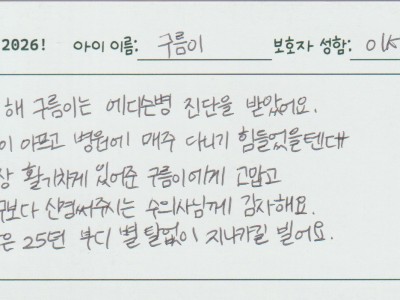 2026! 아이 이름: 구름이 보호자 성함: 이
해 구름이는 에디슨병 진단을 받았어요.
이 아프고 병원에 매주 다니기 힘들었을텐데
상 활기차게 있어준 구름이에게 고맙고
구보다 신경써주시는 수의사님께 감사해요.
은 25년 부디 별 탈없이 지나가길 빌어요.